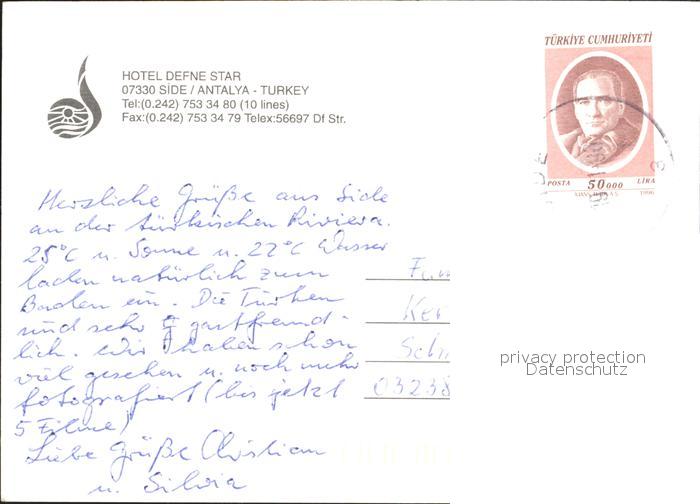 HOTEL DEFNE STAR
07330 SİDE / ANTALYA - TURKEY
Tel:(0.242) 753 34 80 (10 lines)
Fax:(0.242) 753 34 79 Telex:56697 Df Str.
TÜRKİYE CUMHURİYETİ
POSTA 50 000 LİRA
1996
Herzliche Grüße aus Side
an der türkischen Riviera.
25°C u. Sonne u. 22°C Wasser
laden natürlich zum
Baden ein. Die Türken
sind sehr gastfreund-
lich. Wir haben schon
viel gesehen u. noch mehr
fotografiert (bis jetzt
5 Filme)
Liebe Grüße Christian
u. Silvia
Ker
Sch
03238
privacy protection
Datenschutz